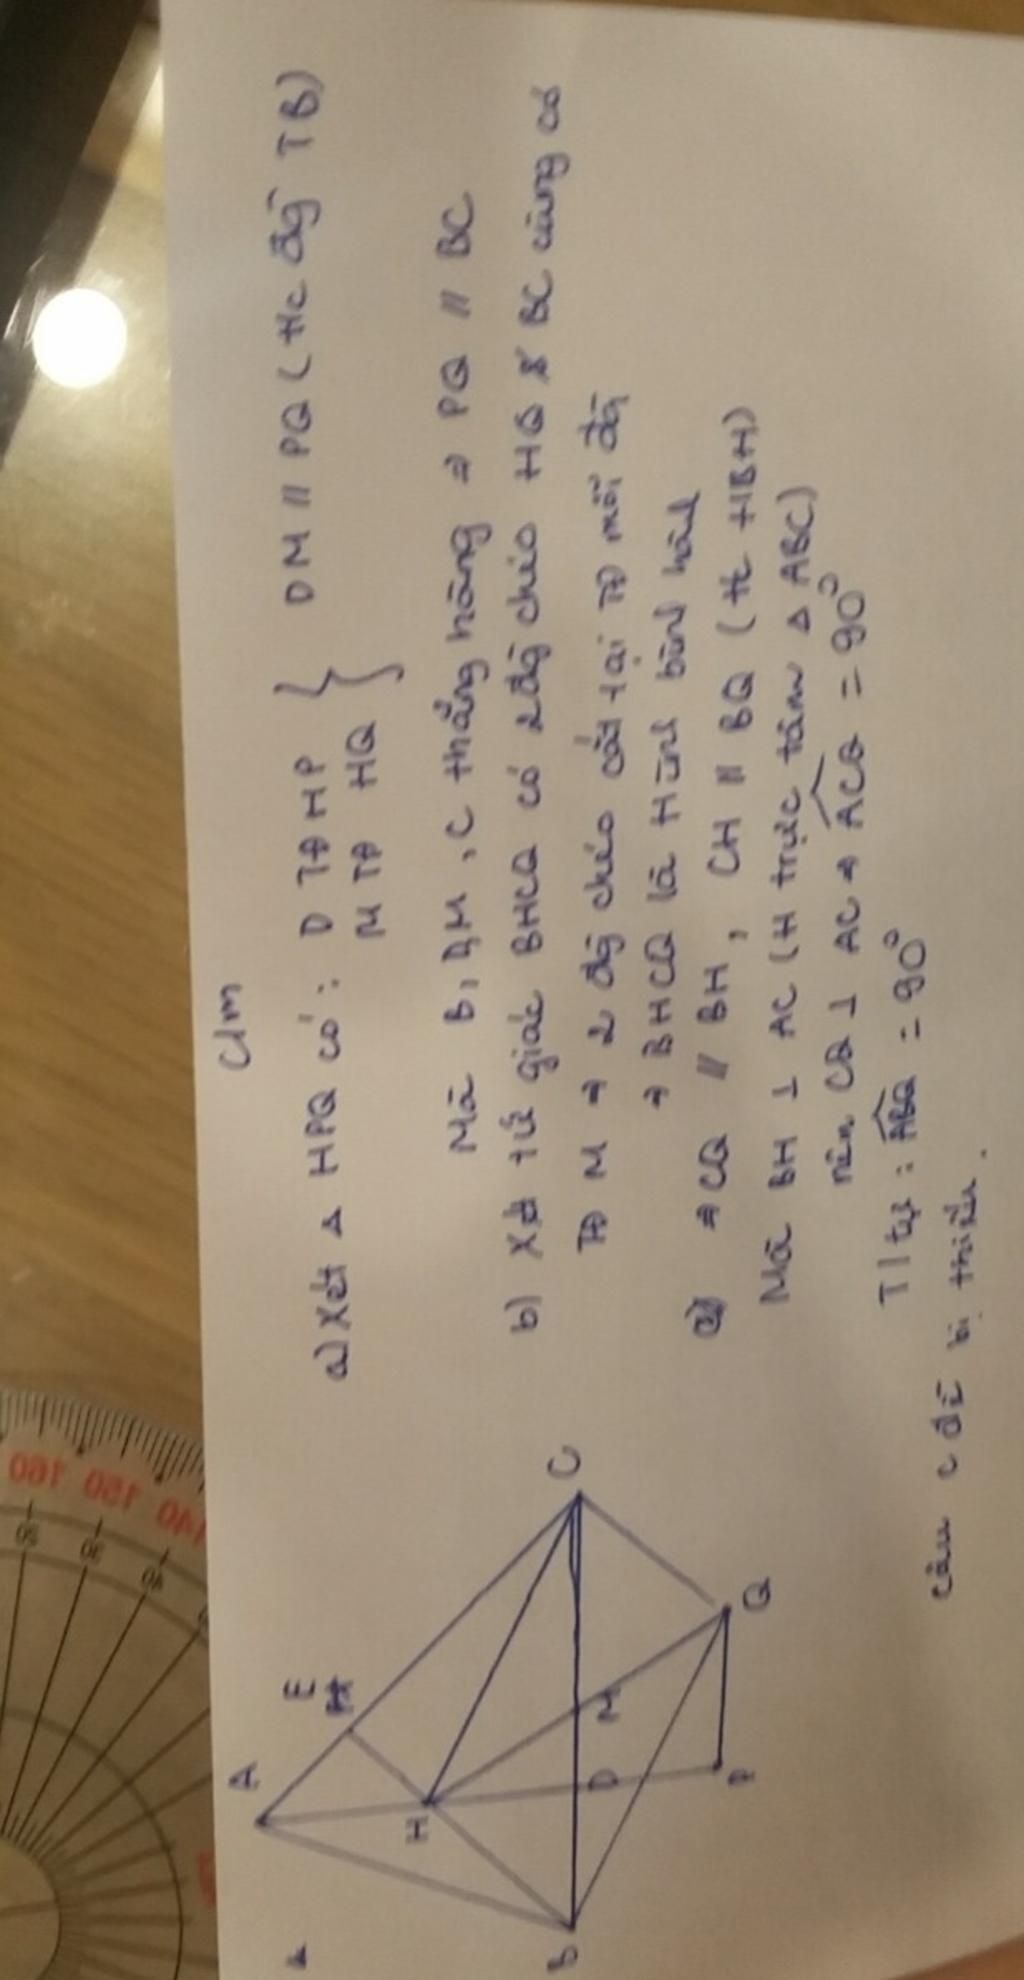 Cm
a) Xét Δ HPQ có: D TĐ HP
M TĐ HQ
DM // PQ (t/c đg TB)
Mà B, D, M, C thẳng hàng ⇒ PQ // BC
b) Xét tứ giác BHCQ có 2 đg chéo HQ & BC cùng có
TĐ M ⇒ 2 đg chéo cắt tại TĐ mỗi đg
⇒ BHCQ là Hình bình hành
⇒ CQ // BH, CH // BQ (t/c HBH)
Mà BH ⊥ AC (H trực tâm Δ ABC)
nên CQ ⊥ AC ⇒ ACQ = 90°
T/tự: ABQ = 90°
câu c đề bị thiếu.
A
E
H
B
D
M
C
P
Q
160 150 140